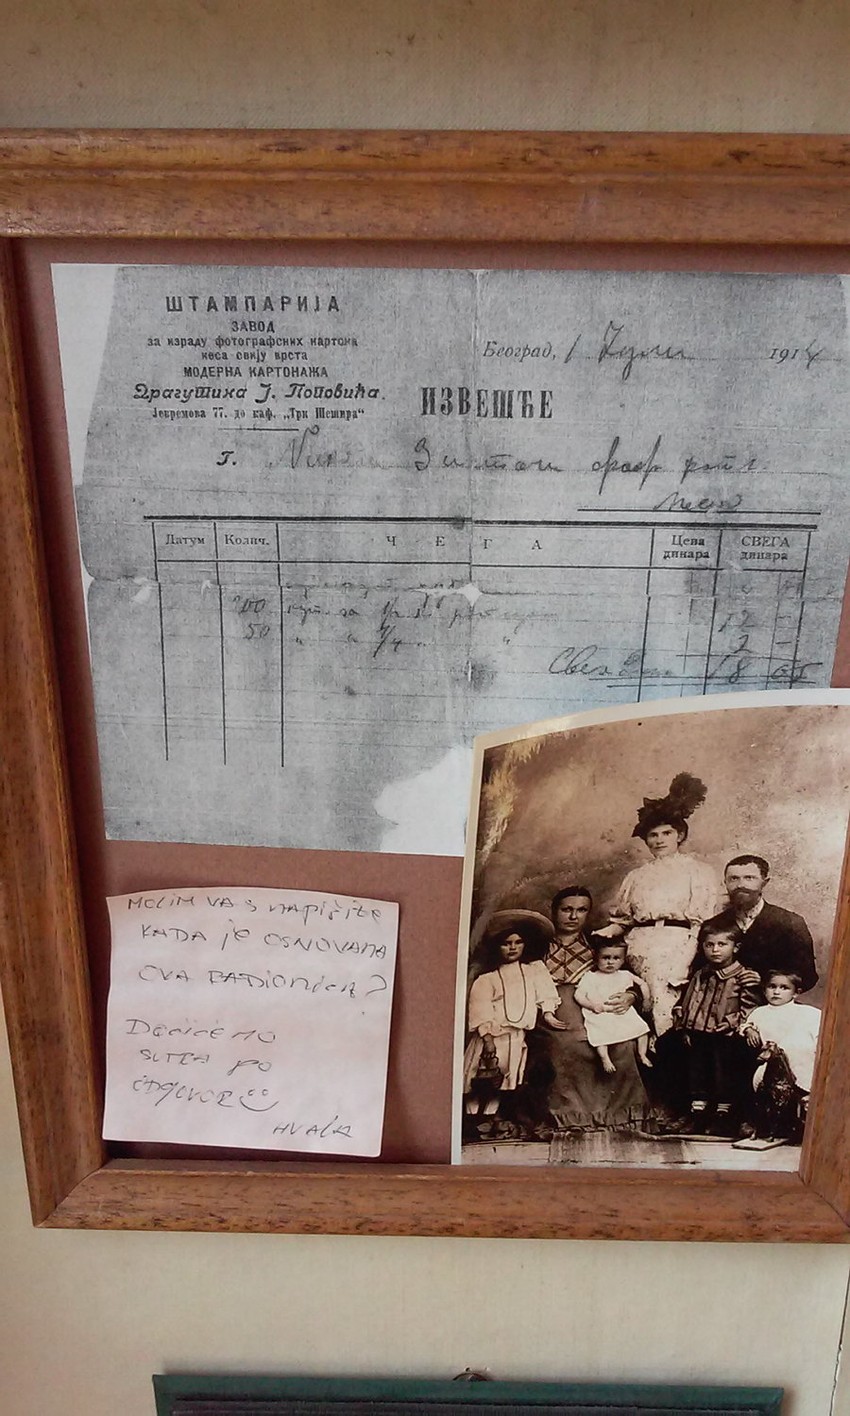 ШТАМПАРИЈА
ЗАВОД
за израду фотографсних картона
неса свију врста
МОДЕРНА КАРТОНАЖА
Драгутина Ј. Поповића.
Јевремова 77. до каф. „Три Шешира“
Београд, 1 1914
ИЗВЕШЋЕ
Г.
Датум Колич. ЧЕГА Цена динара СВЕГА динара
200 за 12 -
50 " " 1/4 " 2 -
18 05
MOLIM VAS NAPIŠITE
KADA JE OSNOVANA
OVA RADIONICA?
DOĆIĆEMO
SUTRA PO
ODGOVOR
HVALA